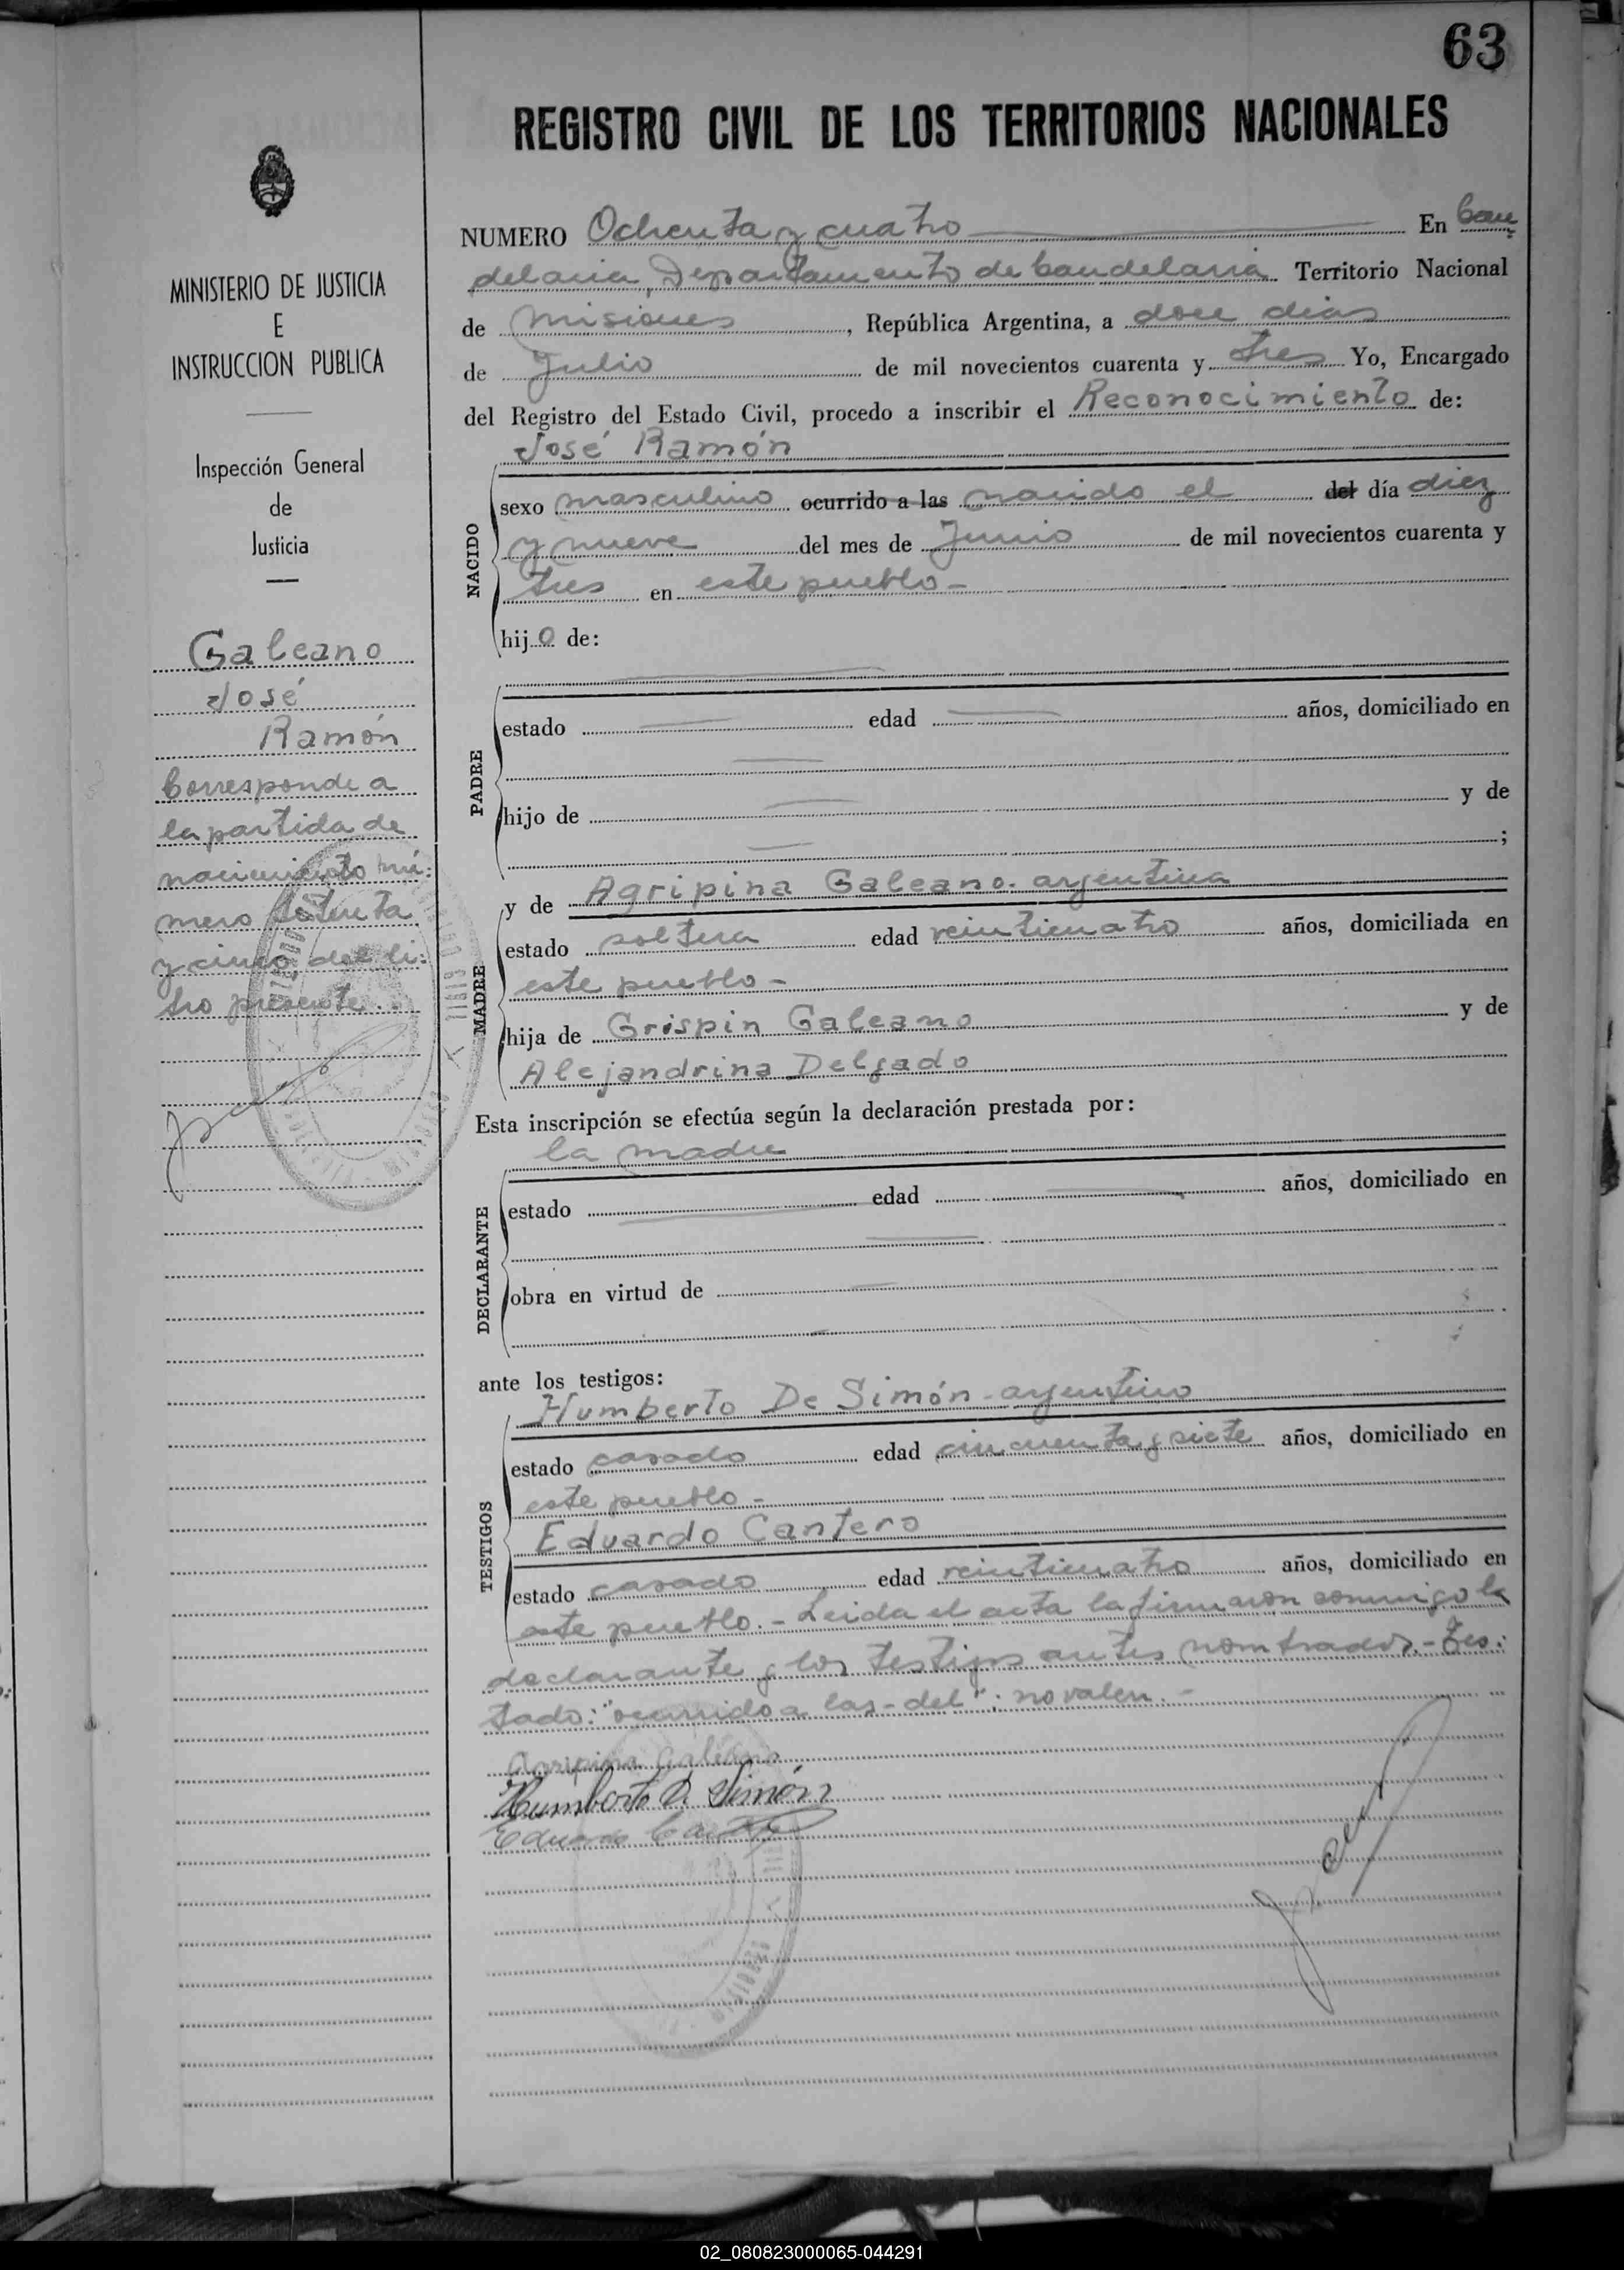 63
REGISTRO CIVIL DE LOS TERRITORIOS NACIONALES
MINISTERIO DE JUSTICIA
E
INSTRUCCION PUBLICA
Inspección General
de
Justicia
Galeano
José
Ramón
Corresponde a
la partida de
nacimiento nú:
mero setenta
y cinco, del li:
bro presente.
NUMERO Ochenta y cuatro En Can
delaria, Departamento de Candelaria Territorio Nacional
de Misiones, República Argentina, a doce dias
de Julio de mil novecientos cuarenta y tres Yo, Encargado
del Registro del Estado Civil, procedo a inscribir el Reconocimiento de:
José Ramón
NACIDO
sexo masculino ocurrido a las nacido el del día diez
y nueve del mes de Junio de mil novecientos cuarenta y
tres en este pueblo-
hijo de:
PADRE
estado edad años, domiciliado en
hijo de y de
;
MADRE
y de Agripina Galeano. argentina
estado soltera edad veinticuatro años, domiciliada en
este pueblo-
hija de Crispin Galeano y de
Alejandrina Delgado
Esta inscripción se efectúa según la declaración prestada por:
la madre
DECLARANTE
estado edad años, domiciliado en
obra en virtud de
ante los testigos:
TESTIGOS
Humberto De Simón-argentino
estado casado edad cincuenta y siete años, domiciliado en
este pueblo-
Eduardo Cantero
estado casado edad veinticuatro años, domiciliado en
este pueblo.- Leida el acta la firmaron conmigo la
declarante y los testigos antes nombrados.- Tes:
tado: "ocurrido a las-del": no valen.-
Agripina Galeano
Humberto D. Simón
Eduardo Cantero
02_080823000065-044291